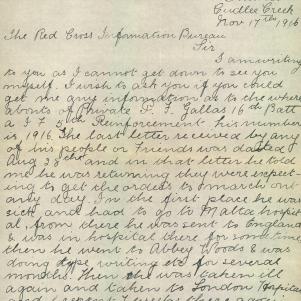 Cudlee Creek
Nov 17th 1916
The Red Cross Information Bureau
Sir
I am writing
to you as I cannot get down to see you
myself. I wish to ask you if you could
get me any information as to the where
abouts of Private F. F. Gallas 16th Batt
A.I.F. 5th Reinforcement his number
is, 1916. The last letter received by any
of his people or Friends was dated
Aug 28th and in that letter he told
me he was returning they were expect-
ing to get the orders to march out
any day. In the first place he was
sick and had to go to Malta hospit
al, from there he was sent to England
& was in hospital there for some time
then he went to Abbey Woods & was
doing type writing etc for several
months. Then he was taken ill
again and taken to London Hospital